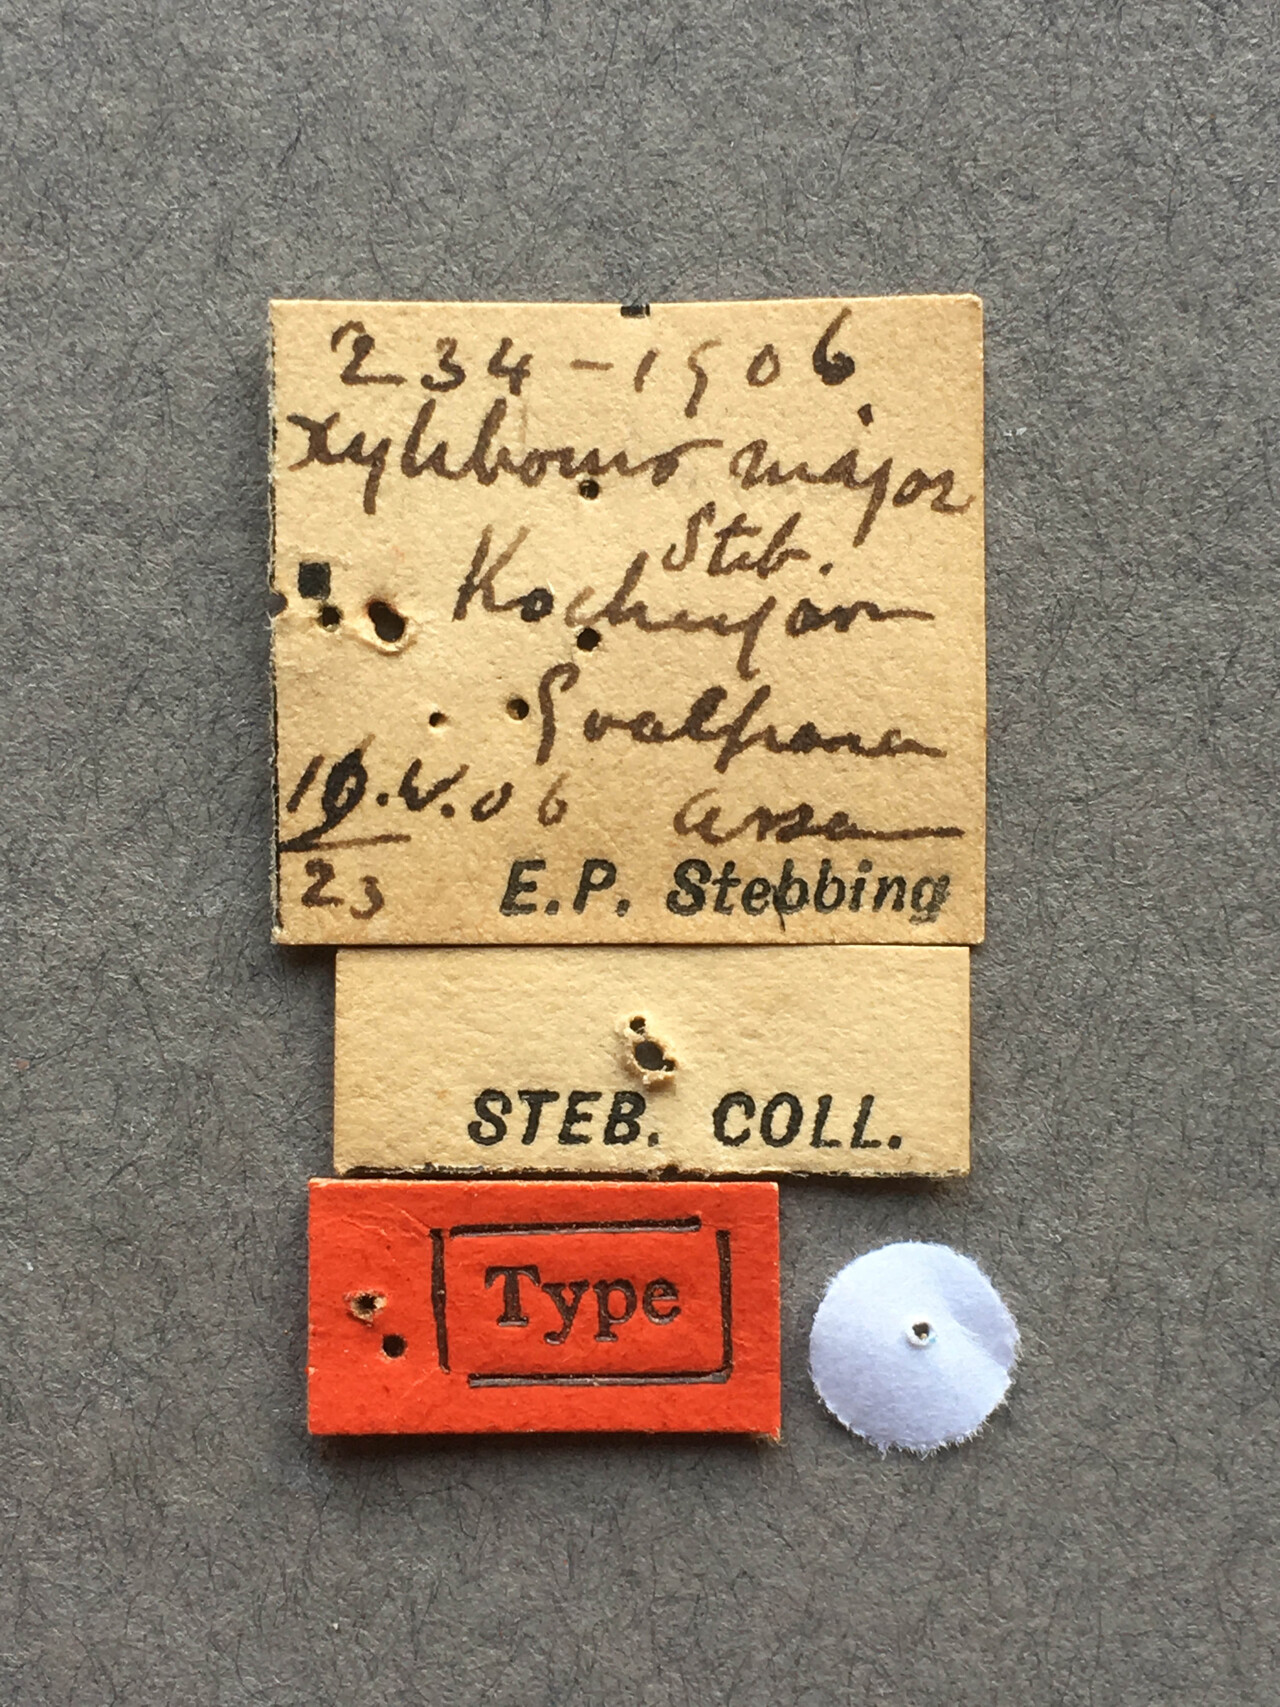 234-1906
Xyleborus major
Steb.
Kochugaon
Goalpara
10.IV.06 Assam
23 E.P. Stebbing
STEB. COLL.
Type